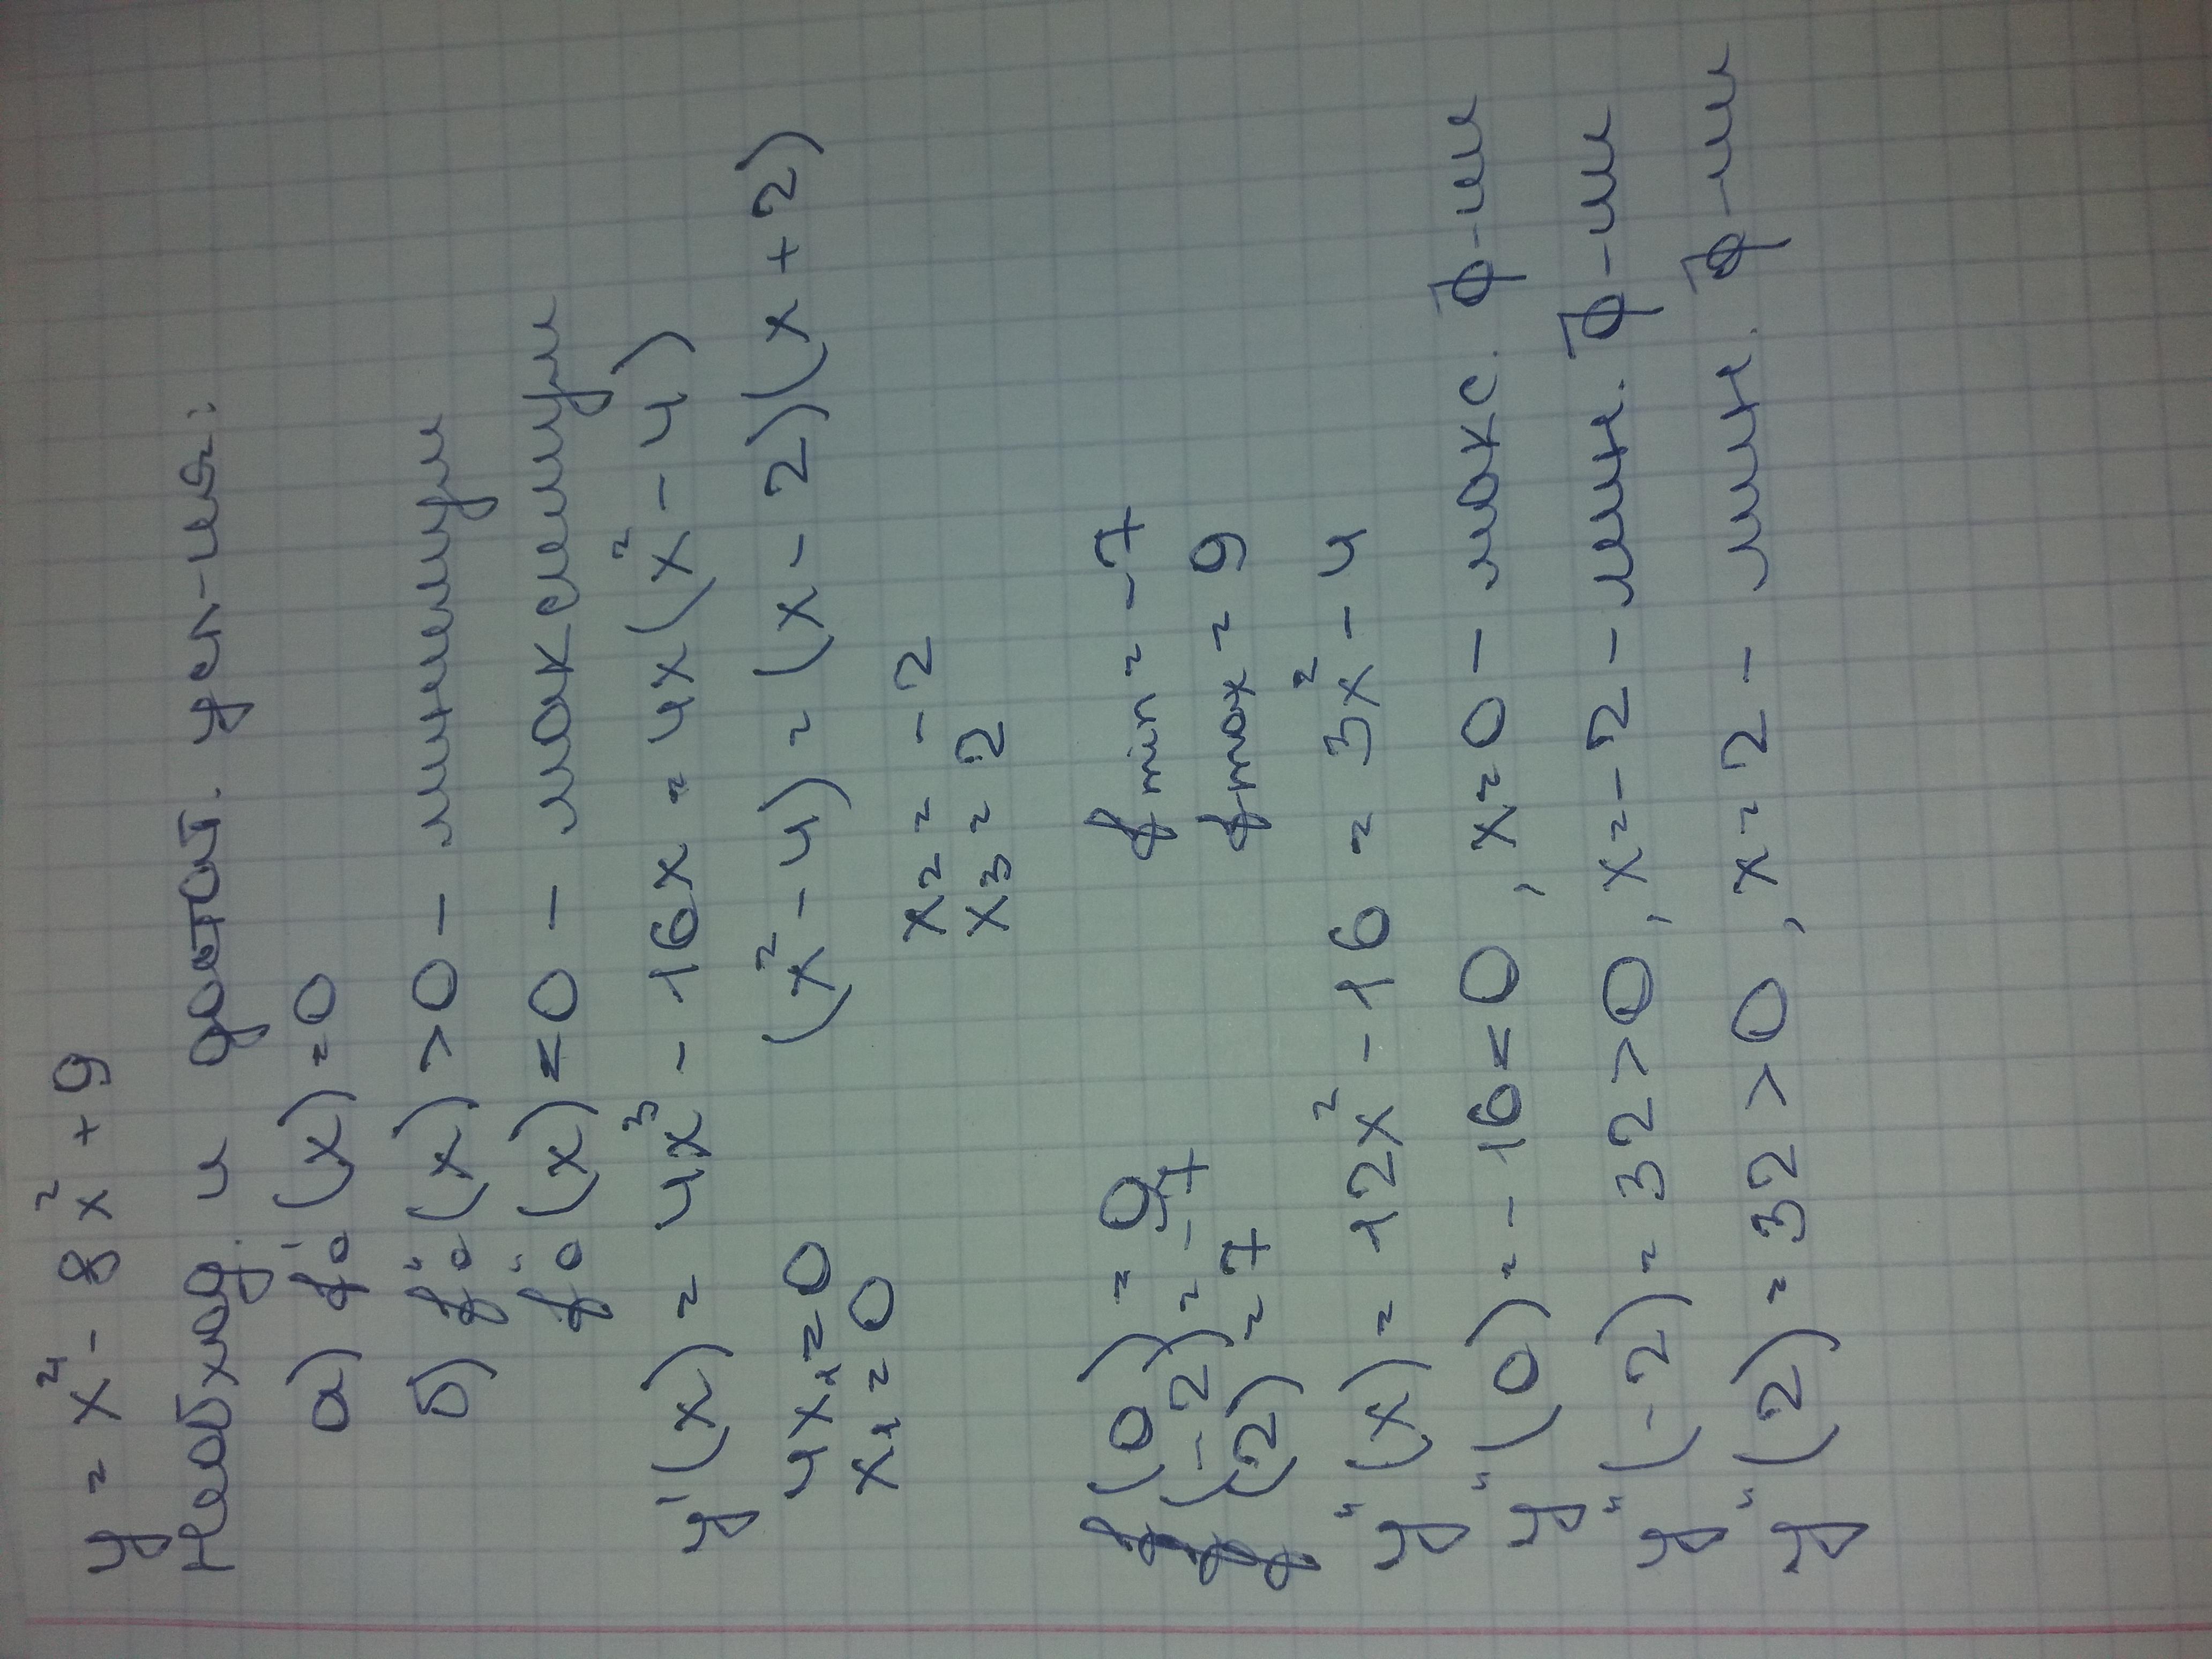 y = x⁴ - 8x² + 9
Необход. и достат. усл-ия:
а) f₀'(x) = 0
б) f₀"(x) > 0 - минимум
f₀"(x) < 0 - максимум
y'(x) = 4x³ - 16x = 4x(x² - 4)
4x₁ = 0 (x² - 4) = (x - 2)(x + 2)
x₁ = 0 x₂ = -2
x₃ = 2
f(0) = 9 fmin = -7
f(-2) = -7 fmax = 9
f(2) = -7
y"(x) = 12x² - 16 = 3x² - 4
y"(0) = -16 < 0, x = 0 - макс. ф-ии
y"(-2) = 32 > 0, x = -2 - мин. ф-ии
y"(2) = 32 > 0, x = 2 - мин. ф-ии